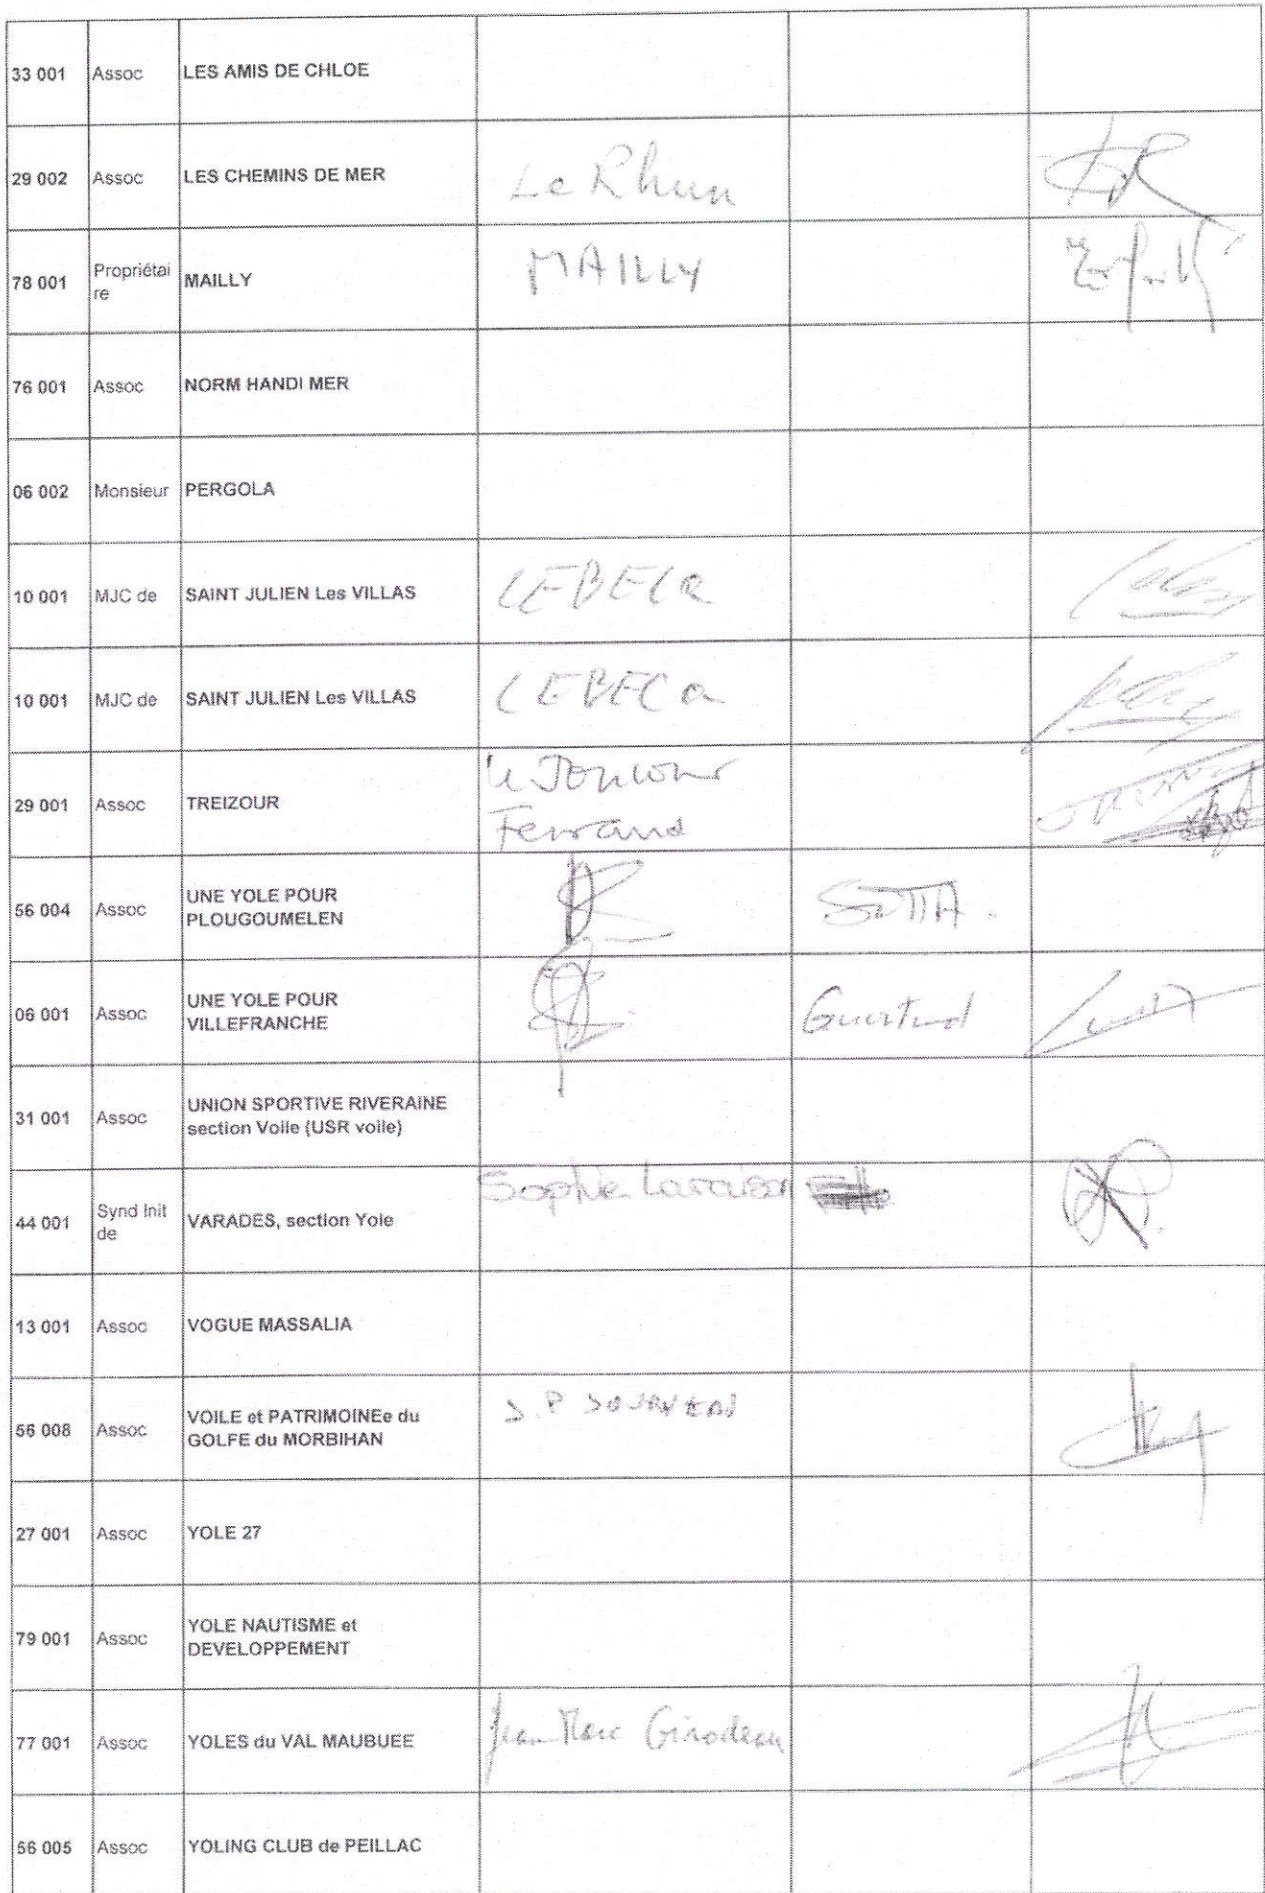 33 001 Assoc LES AMIS DE CHLOE
29 002 Assoc LES CHEMINS DE MER Le Rhun
78 001 Propriétai
re MAILLY MAILLY
76 001 Assoc NORM HANDI MER
06 002 Monsieur PERGOLA
10 001 MJC de SAINT JULIEN Les VILLAS
10 001 MJC de SAINT JULIEN Les VILLAS
29 001 Assoc TREIZOUR
Ferrand
56 004 Assoc UNE YOLE POUR
PLOUGOUMELEN
06 001 Assoc UNE YOLE POUR
VILLEFRANCHE
31 001 Assoc UNION SPORTIVE RIVERAINE
section Voile (USR voile)
44 001 Synd Init
de VARADES, section Yole Sophie
13 001 Assoc VOGUE MASSALIA
56 008 Assoc VOILE et PATRIMOINEe du
GOLFE du MORBIHAN J.P
27 001 Assoc YOLE 27
79 001 Assoc YOLE NAUTISME et
DEVELOPPEMENT
77 001 Assoc YOLES du VAL MAUBUEE Jean Marc Girodeau
56 005 Assoc YOLING CLUB de PEILLAC